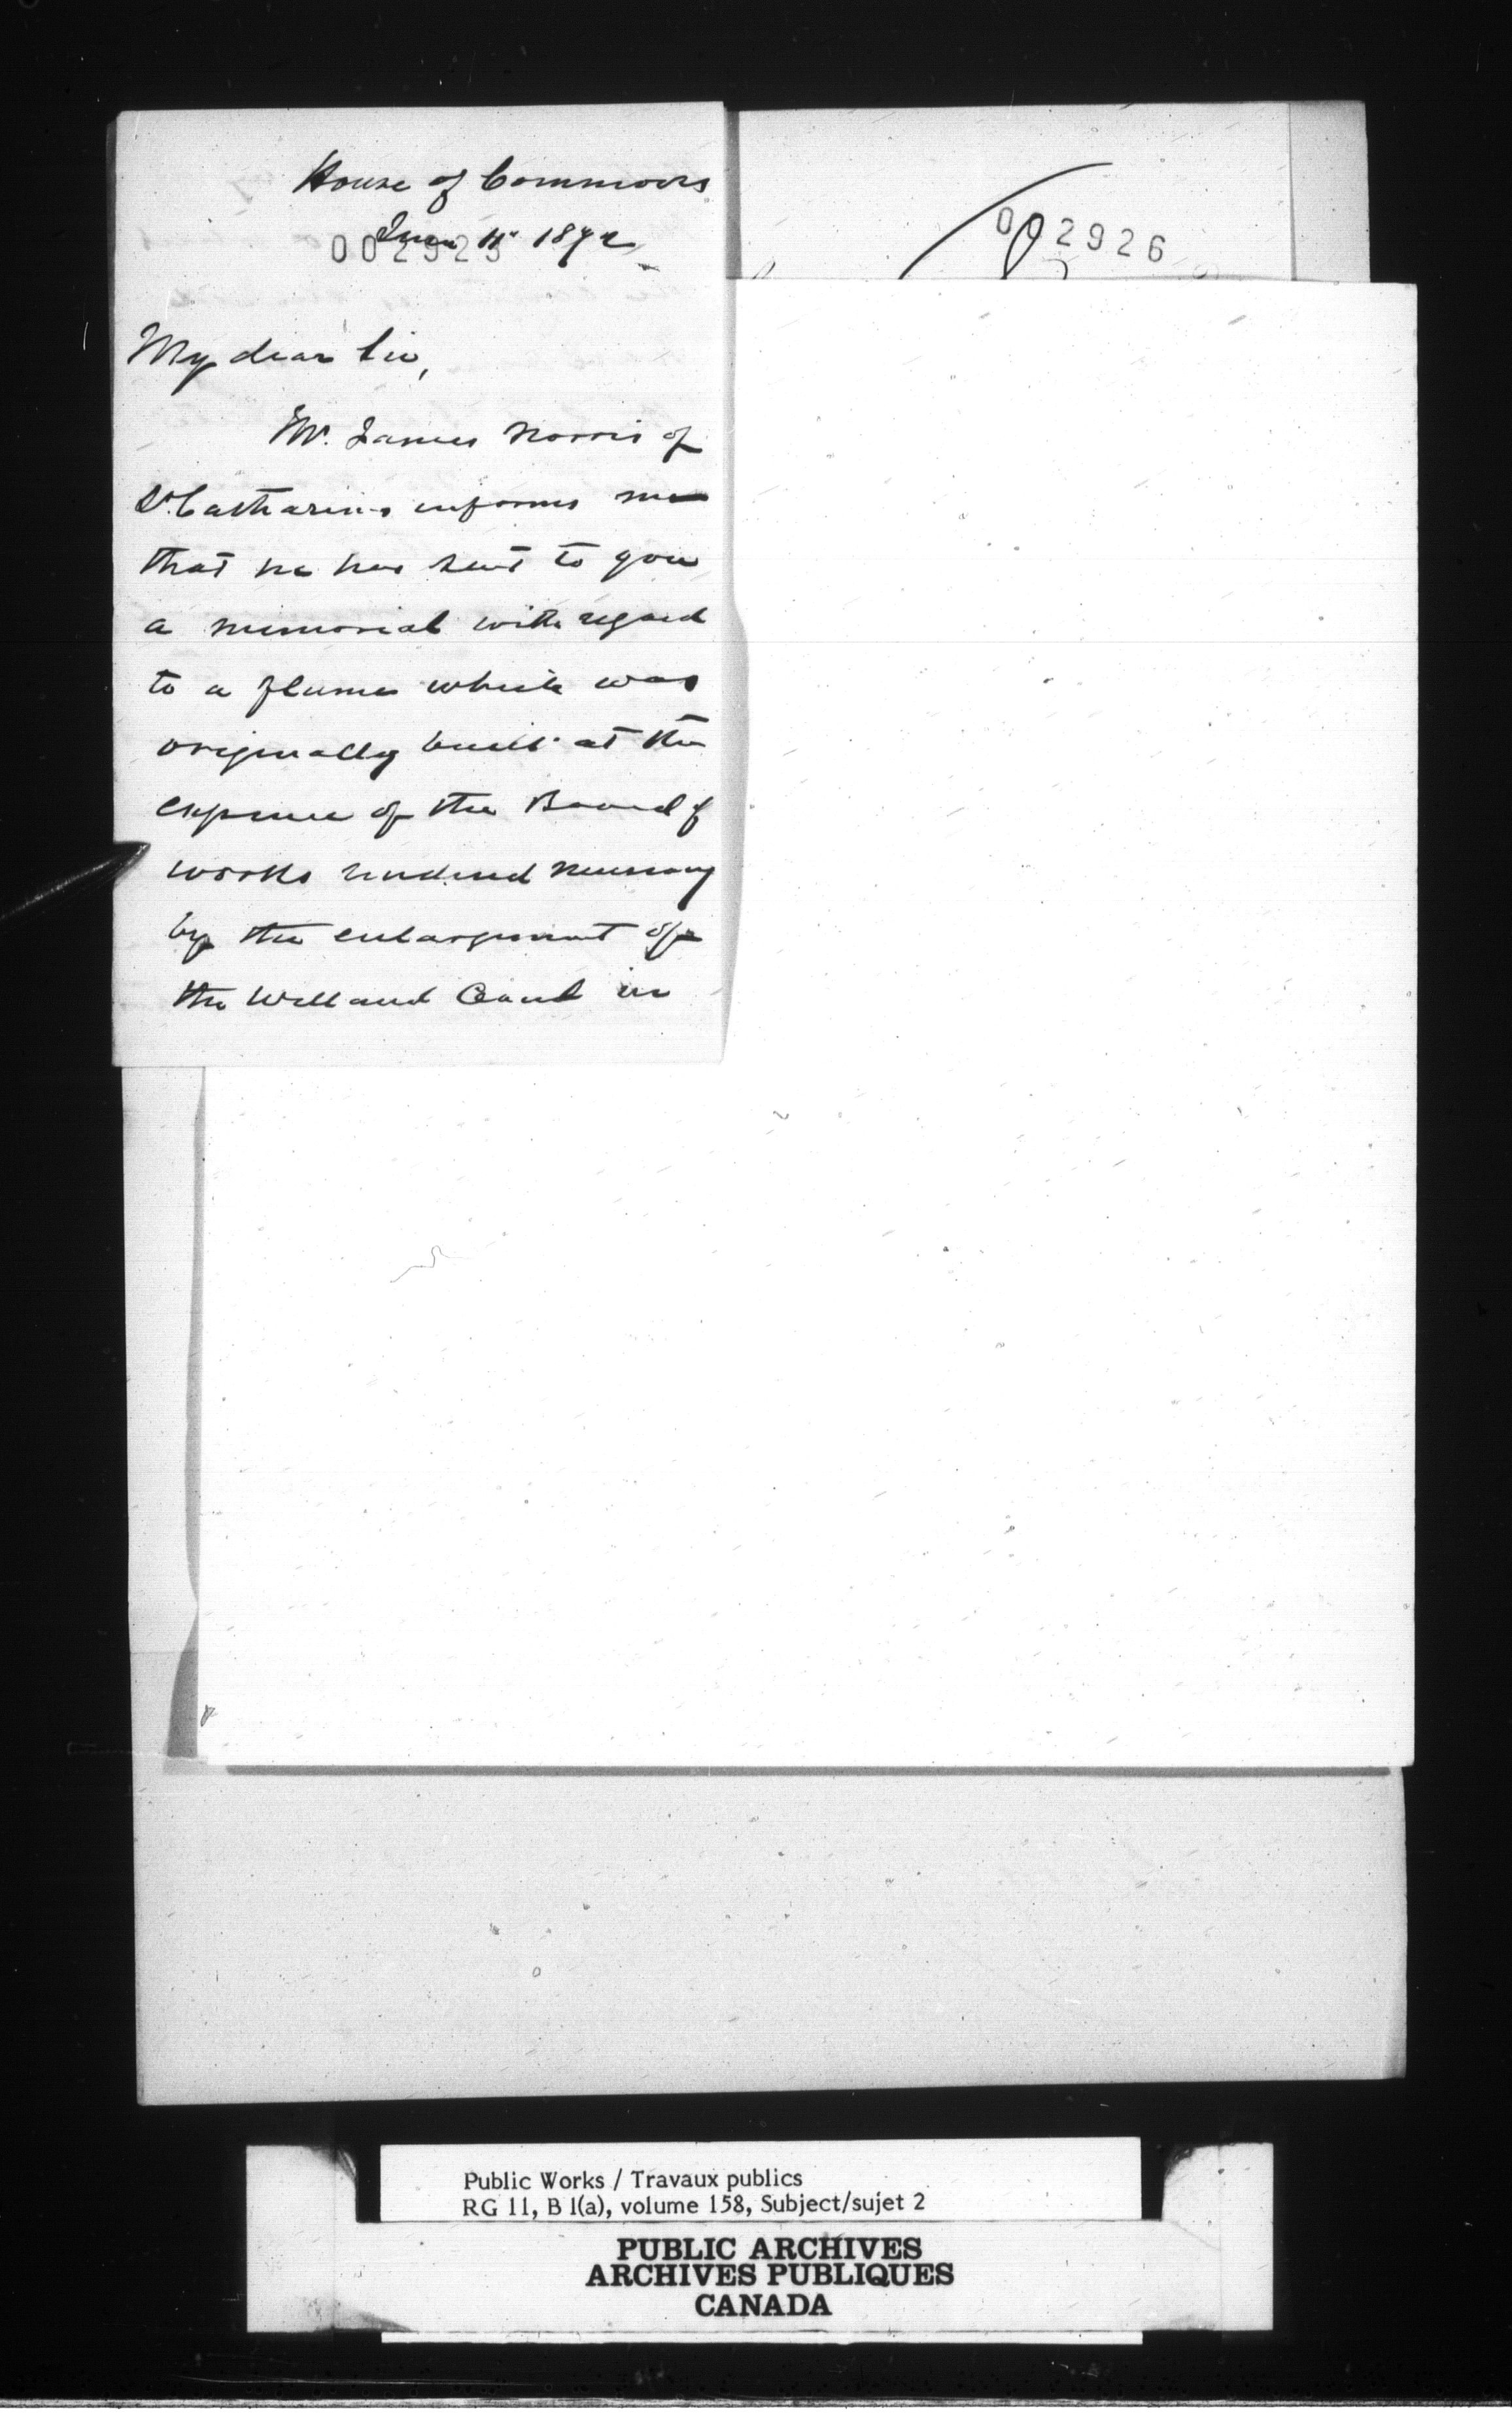 House of Commons
June 11th 1872
002925
My dear Sir,
Mr. James Norris of
St. Catharines informs me
that he has sent to you
a memorial with regard
to a flume which was
originally built at the
expense of the Board of
Works rendered necessary
by the enlargement of
the Welland Canal in
002926
Public Works / Travaux publics
RG 11, B 1(a), volume 158, Subject/sujet 2
PUBLIC ARCHIVES
ARCHIVES PUBLIQUES
CANADA